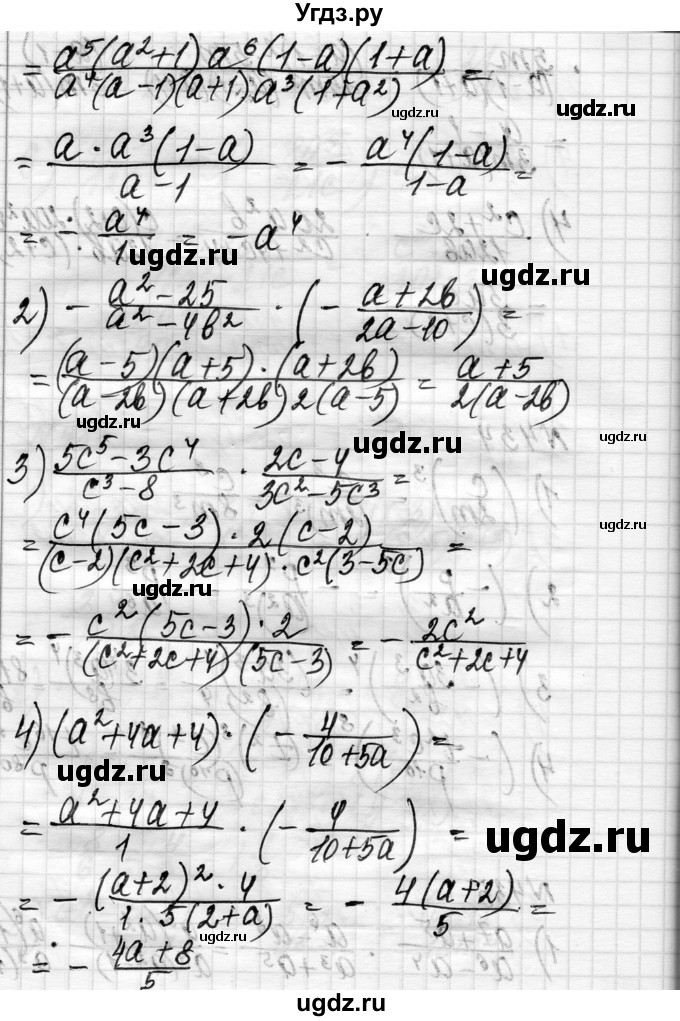 Угдз.ру
= a⁵(a²+1) a⁶(1-a)(1+a) / a⁴(a-1)(a+1) a³(1+a²) =
ugdz.ru
= a·a³(1-a) / a-1 = - a⁴(1-a) / 1-a =
ugdz.ru
= - a⁴/1 = -a⁴
ugdz.ru
ugdz.ru
2) - a²-25 / a²-4b² · (- a+2b / 2a-10) =
ugdz.ru
= (a-5)(a+5)·(a+2b) / (a-2b)(a+2b)2(a-5) = a+5 / 2(a-2b)
ugdz.ru
ugdz.ru
3) 5c⁵-3c⁴ / c³-8 · 2c-4 / 3c²-5c³ =
ugdz.ru
= c⁴(5c-3)·2(c-2) / (c-2)(c²+2c+4)·c²(3-5c) =
ugdz.ru
ugdz.ru
= - c²(5c-3)·2 / (c²+2c+4)(5c-3) = - 2c² / c²+2c+4
ugdz.ru
4) (a²+4a+4)·(- 4 / 10+5a) =
ugdz.ru
= a²+4a+4 / 1 · (- 4 / 10+5a) =
ugdz.ru
ugdz.ru
= - (a+2)²·4 / 1·5(2+a) = - 4(a+2) / 5 =
ugdz.ru
= - 4a+8 / 5
ugdz.ru
ugdz.ru